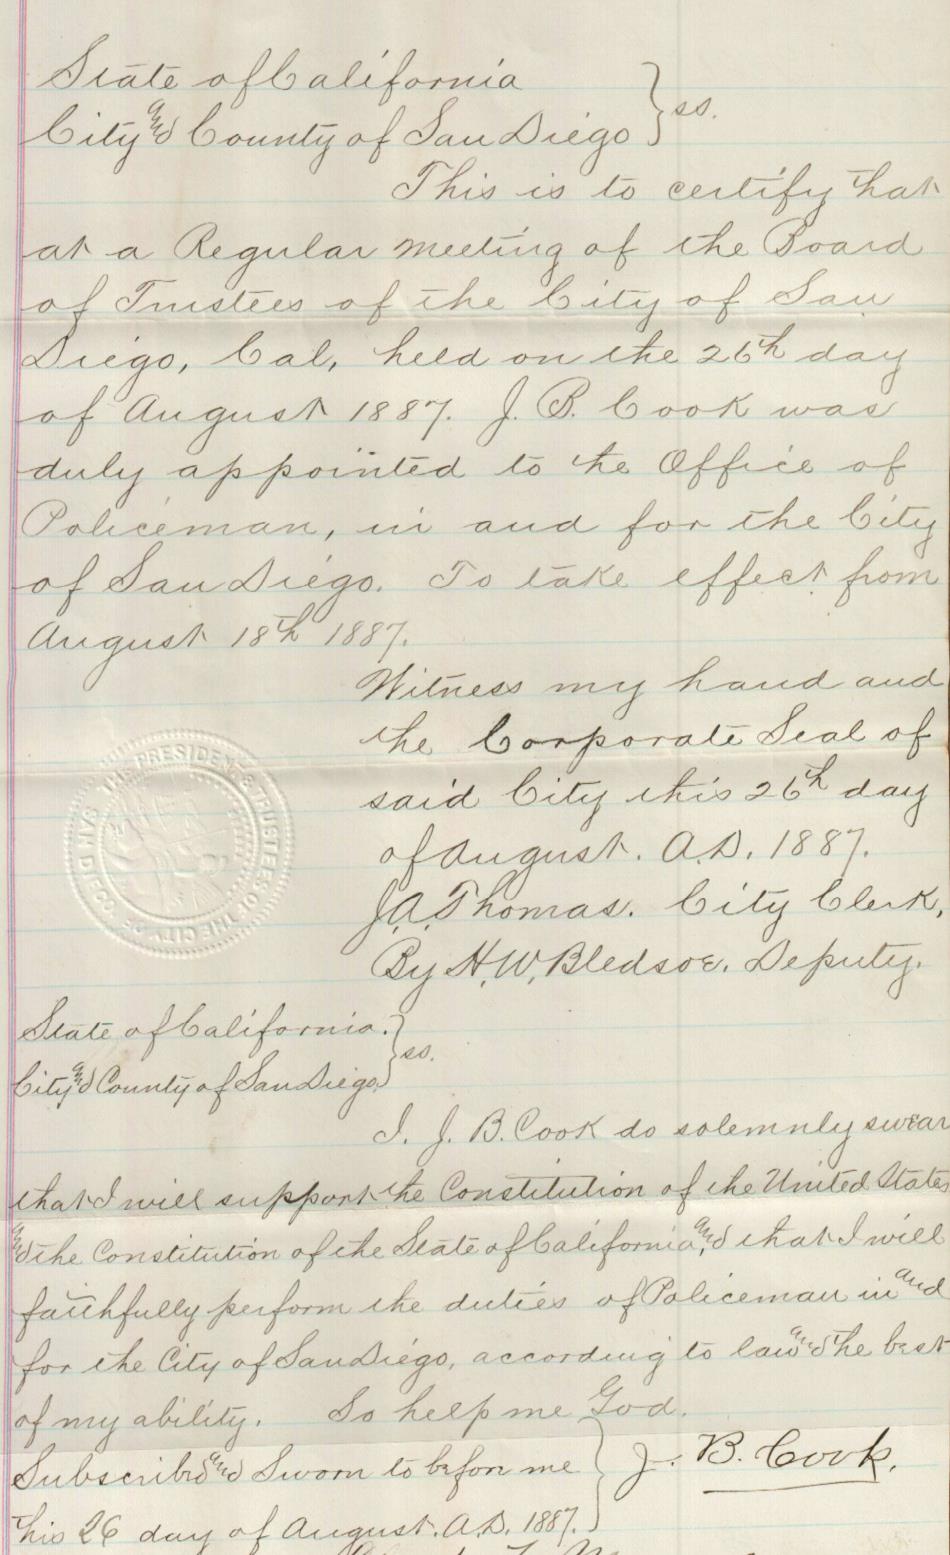 State of California
City and County of San Diego } ss.
This is to certify that
at a Regular meeting of the Board
of Trustees of the City of San
Diego, Cal, held on the 26th day
of August 1887. J. B. Cook was
duly appointed to the Office of
Policeman, in and for the City
of San Diego. To take effect from
August 18th 1887.
Witness my hand and
the Corporate Seal of
said City this 26th day
of August. A.D. 1887.
J.A. Thomas. City Clerk,
By H.W. Bledsoe. Deputy.
THE PRESIDENT & TRUSTEES OF THE CITY OF SAN DIEGO
State of California.
City and County of San Diego. } ss.
I. J. B. Cook do solemnly swear
that I will support the Constitution of the United States
and the Constitution of the State of California, and that I will
faithfully perform the duties of Policeman in and
for the City of San Diego, according to law and the best
of my ability. So help me God.
Subscribed and Sworn to before me } J. B. Cook.
this 26 day of August. A.D. 1887.